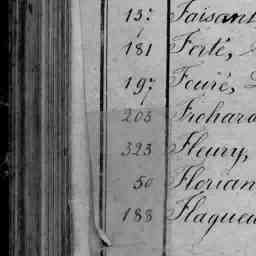 157 Faisant
181 Forté,
197 Fouré,
203 Frohard
323 Fleury,
50 Florian
188 Flaqueu